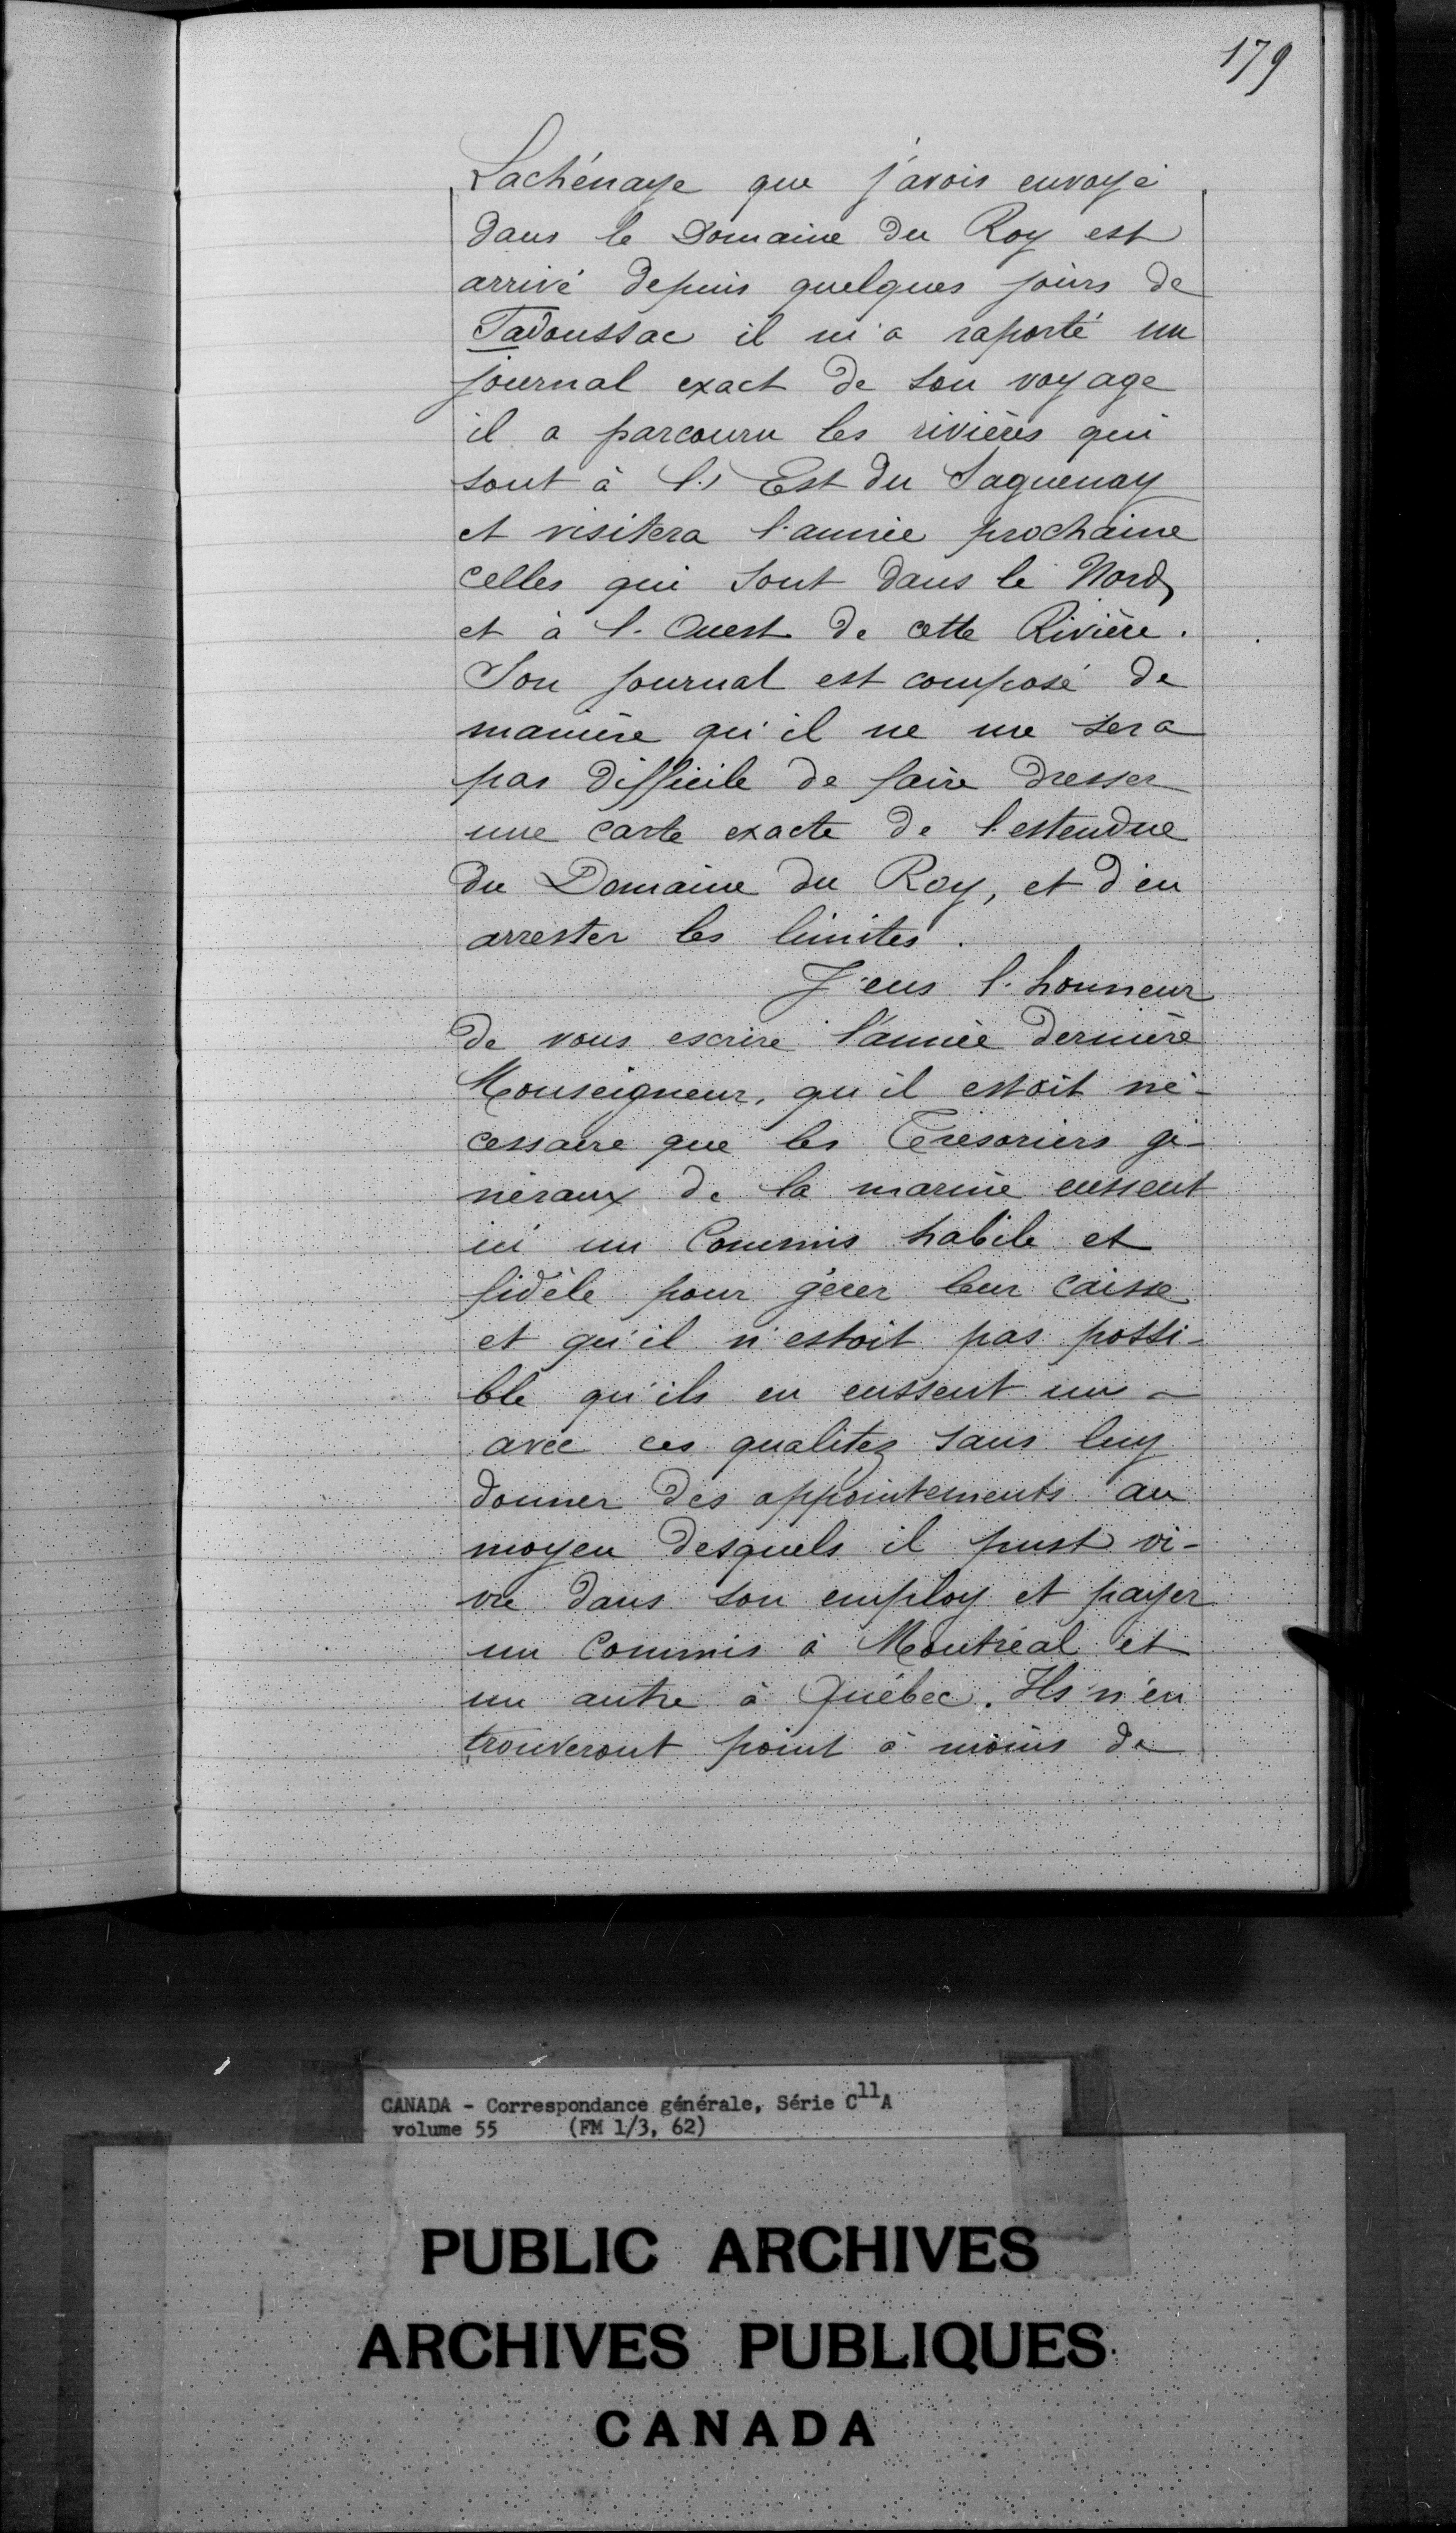 179
Lachénaye que j'avois envoyé
dans le Domaine du Roy est
arrivé depuis quelques jours de
Tadoussac il m'a raporté un
journal exact de son voyage
il a parcouru les rivières qui
sont à l'Est du Saguenay
et visitera l'année prochaine
celles qui sont dans le Nord
et à l'Ouest de cette Rivière.
Son journal est composé de
manière qu'il ne me sera
pas difficile de faire dresser
une carte exacte de l'estendue
du Domaine du Roy, et d'en
arrester les limites.
J'eus l'honneur
de vous escrire l'année dernière
Monseigneur, qu'il estoit né-
cessaire que les Trésoriers gé-
néraux de la marine eussent
ici un Commis habile et
fidèle pour gérer leur caisse
et qu'il n'estoit pas possi-
ble qu'ils en eussent un -
avec ces qualitez sans luy
donner des appointements au
moyen desquels il pust vi-
vre dans son employ et payer
un Commis à Montréal et
un autre à Québec. Ils n'en
trouveront point à moins de
CANADA - Correspondance générale, Série C11A
volume 55 (FM 1/3, 62)
PUBLIC ARCHIVES
ARCHIVES PUBLIQUES
CANADA